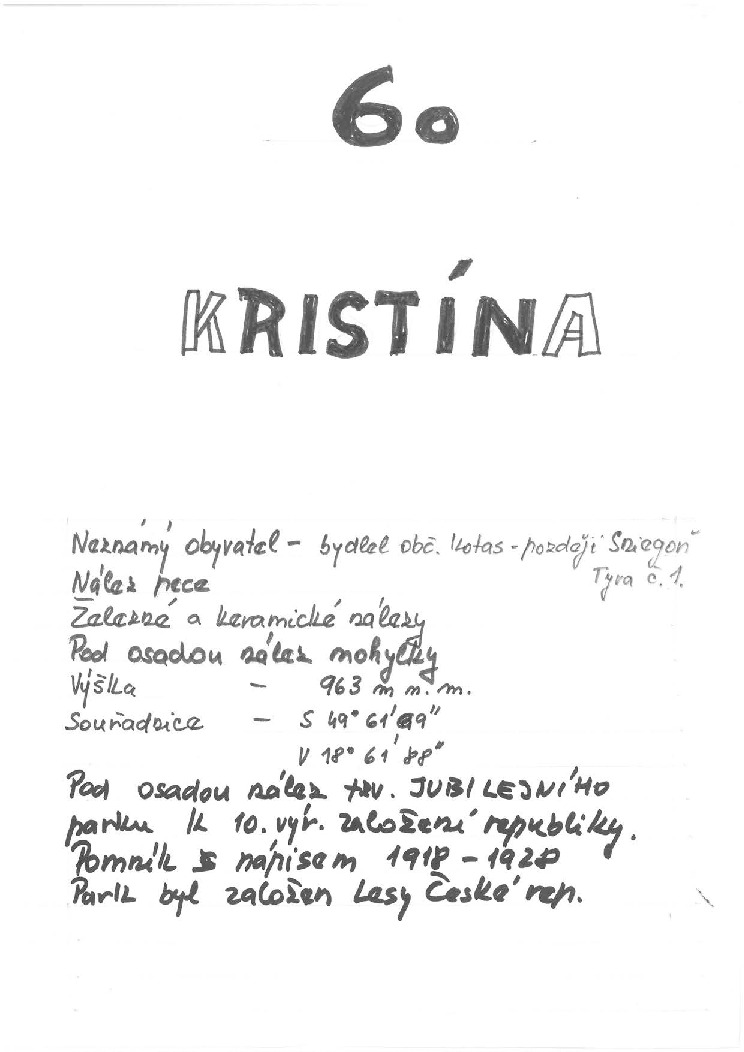 60
KRISTÍNA
Neznámý obyvatel - bydlel obč. Kotas - později Szlegoň
Nález pece
Tyra č. 1.
Železné a keramické nálezy
Pod osadou nález mohylky
Výška - 963 m n. m.
Souřadnice - S 49° 61' 99"
V 18° 61' 88"
Pod osadou nález tzv. JUBILEJNÍHO
parku k 10. výr. založení republiky.
Pomník s nápisem 1918 - 1928
Park byl založen Lesy České rep.